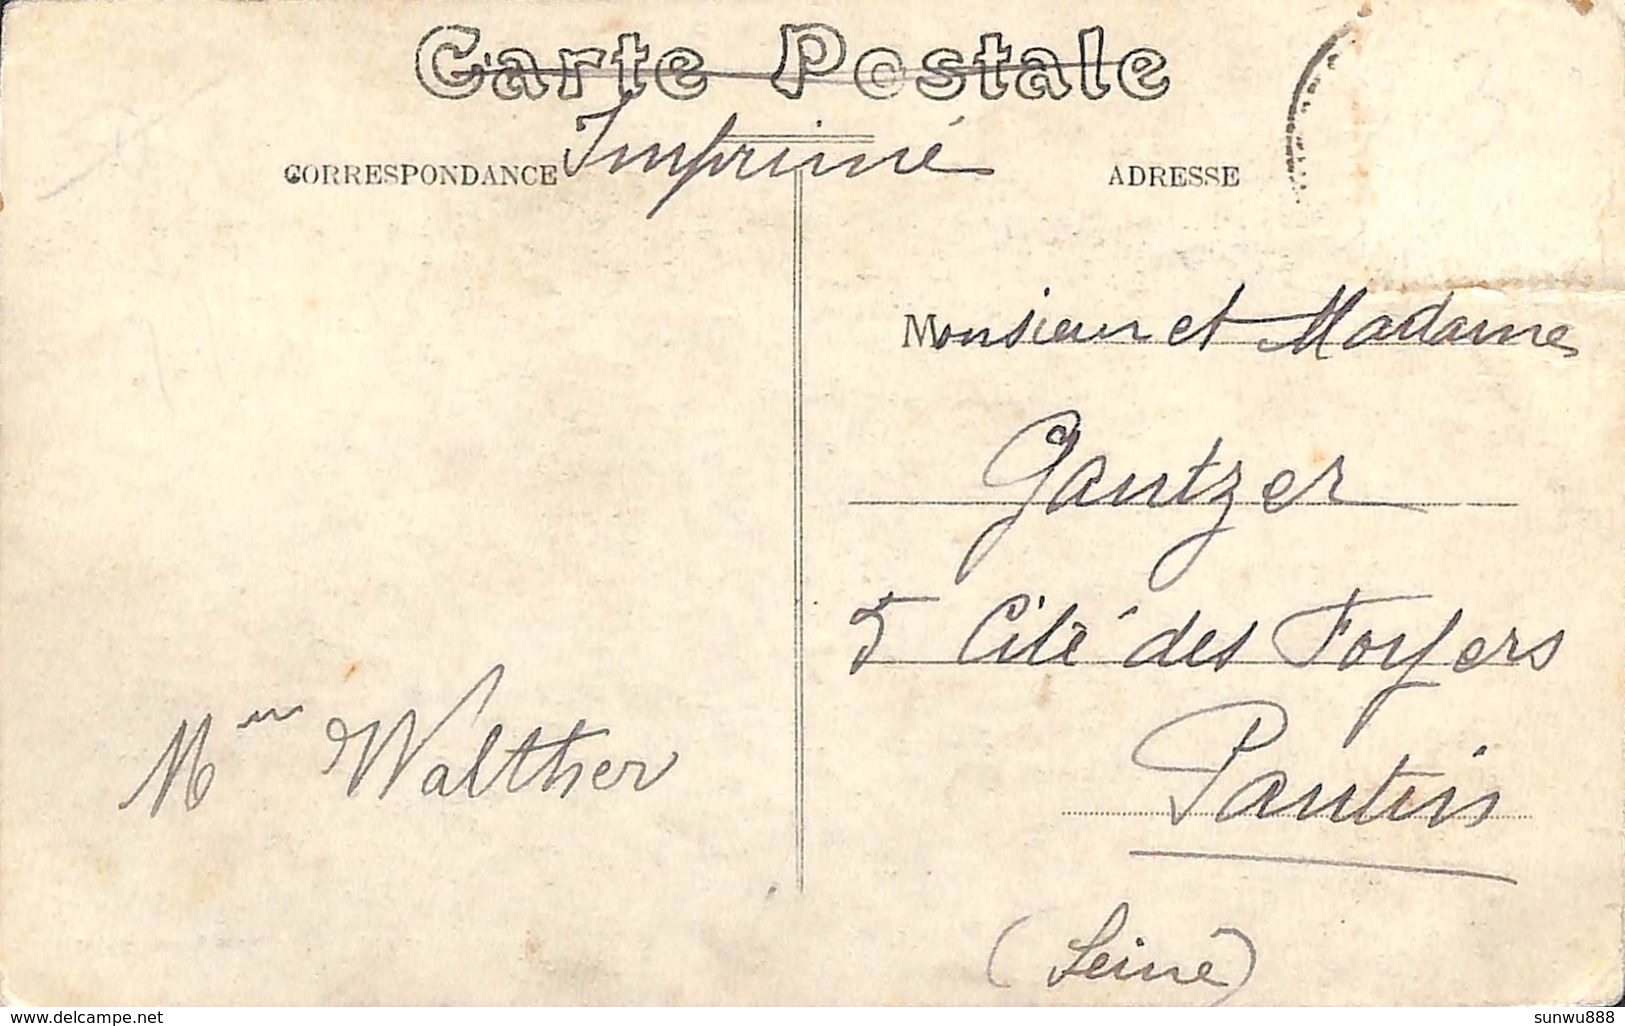 Carte Postale
Imprimé
CORRESPONDANCE
ADRESSE
Monsieur et Madame
Gantzer
5 Cité des Foyers
Pantin
(Seine)
Mme Walther
www.delcampe.net
sunwu888